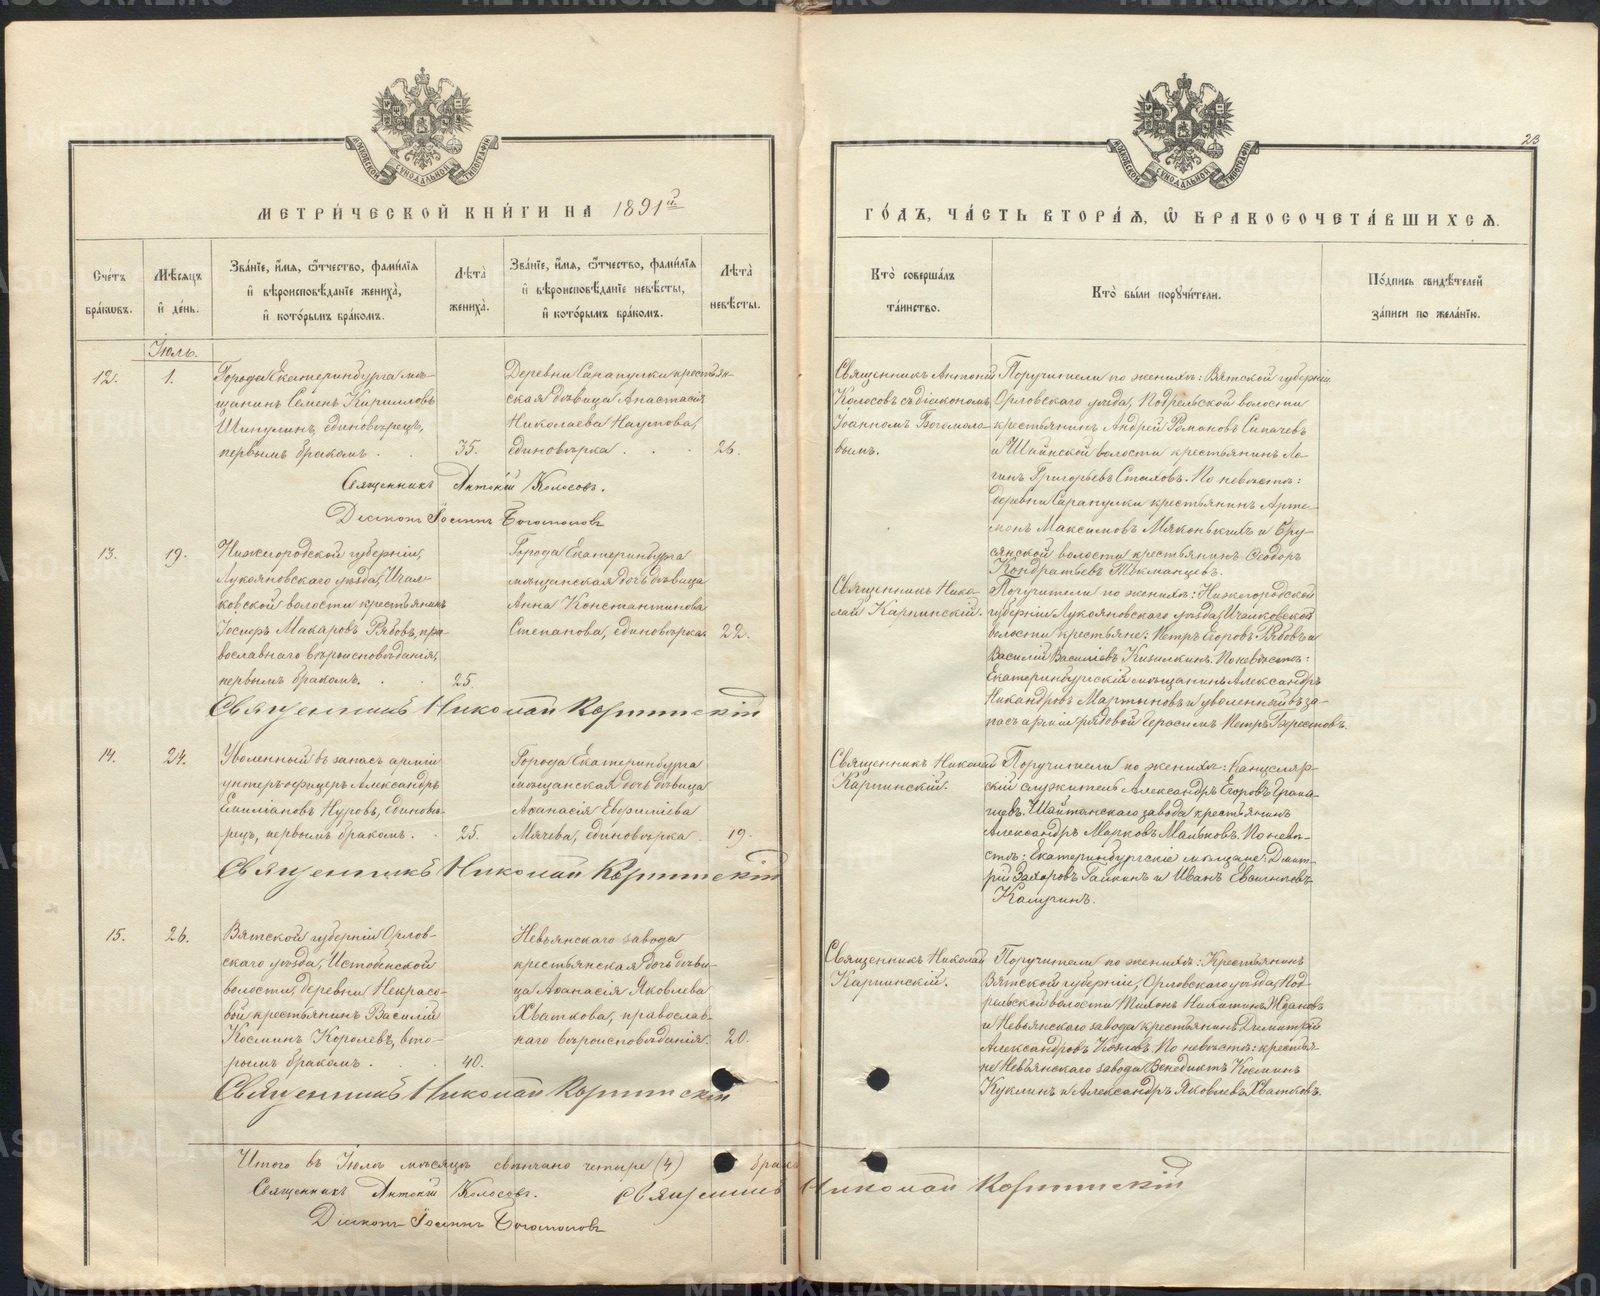 МЕТРИЧЕСКОЙ КНИГИ НА 1891й
Счетъ браковъ.
Мѣсяцъ и день.
Званіе, имя, отчество, фамилія и вѣроисповѣданіе жениха, и которымъ бракомъ.
Лѣта жениха.
Званіе, имя, отчество, фамилія и вѣроисповѣданіе невѣсты, и которымъ бракомъ.
Лѣта невѣсты.
Іюль.
12.
1.
Города Екатеринбурга мѣ-
щанинъ Семенъ Кирилловъ
Шипулинъ, единовѣрецъ,
первымъ бракомъ.
35.
Деревни Сарапулки крестьян-
ская дѣвица Анастасія
Николаева Наумова,
единовѣрка
26.
Священникъ Антоній Колосовъ.
Діаконъ Іоаннъ Богомоловъ
13.
19.
Нижегородской губерніи,
Лукояновскаго уѣзда, Ичал-
ковской волости крестьянинъ
Макаровъ Рябовъ, пра-
вославнаго вѣроисповѣданія,
первымъ бракомъ.
25.
Города Екатеринбурга
мѣщанская дочь дѣвица
Анна Константинова
Степанова, единовѣрка
22.
Священникъ Николай Карпинскій
14.
24.
Уволенный въ запасъ арміи
унтеръ-офицеръ Александръ
Емиліановъ Нуровъ, единовѣ-
рецъ, первымъ бракомъ.
25.
Города Екатеринбурга
мѣщанская дочь дѣвица
Аѳанасія Евфиміева
Мячева, единовѣрка
19.
Священникъ Николай Карпинскій
15.
26.
Вятской губерніи Орлов-
скаго уѣзда, Истобенской
волости, деревни Некрасо-
вой крестьянинъ Василій
Косминъ Королевъ, вто-
рымъ бракомъ.
40.
Невьянскаго завода
крестьянская дочь дѣви-
ца Аѳанасія Яковлева
Хваткова, православ-
наго вѣроисповѣданія.
20.
Священникъ Николай Карпинскій
Итого въ Іюлѣ мѣсяцѣ свѣнчано четыре (4) брака
Священникъ Антоній Колосовъ. Священникъ Николай Карпинскій
Діаконъ Іоаннъ Богомоловъ
23
ГОДЪ, ЧАСТЬ ВТОРАЯ, Ѡ БРАКОСОЧЕТАВШИХСЯ.
Кто совершалъ таинство.
Кто были поручители.
Подпись свидѣтелей записи по желанію.
Священникъ Антоній
Колосовъ съ діакономъ
Іоанномъ Богомоло-
вымъ.
Поручители по женихѣ: Вятской губерніи
Орловскаго уѣзда, Подрельской волости
крестьянинъ Андрей Романовъ Сипачевъ
и волости крестьянинъ Ло-
гинъ Григорьевъ Стаховъ. По невѣстѣ:
деревни Сарапулки крестьянинъ Арте-
монъ Максимовъ Мяконькихъ и Бру-
сянской волости крестьянинъ Ѳеодоръ
Кондратьевъ Токманцевъ.
Священникъ Нико-
лай Карпинскій.
Поручители по женихѣ: Нижегородской
губерніи Лукояновскаго уѣзда, Ичалковской
волости крестьяне: Петръ Егоровъ Рябовъ и
Василій Василіевъ Кизилкинъ. По невѣстѣ:
Екатеринбургскій мѣщанинъ Александръ
Никандровъ Мартыновъ и уволенный въ за-
пасъ арміи рядовой Герасимъ Петръ Бересневъ.
Священникъ Николай
Карпинскій.
Поручители по женихѣ: Канцеляр-
скій служитель Александръ Егоровъ
Шайтанскаго завода крестьянинъ
Александръ Марковъ Мальковъ. По невѣ-
стѣ: Екатеринбургскіе мѣщане: Димит-
рій Захаровъ Галкинъ и Иванъ Евсигніевъ
Калугинъ.
Священникъ Николай
Карпинскій.
Поручители по женихѣ: Крестьянинъ
Вятской губерніи, Орловскаго уѣзда, Под-
рельской волости Тихонъ Никитинъ Ждановъ
и Невьянскаго завода крестьянинъ Димитрій
Александровъ По невѣстѣ: крестья-
не Невьянскаго завода Венедиктъ Косминъ
Куклинъ и Александръ Яковлевъ Хватковъ.
METRIKI.GASO-URAL.RU
МОСКОВСКОЙ СѴНОДАЛЬНОЙ ТИПОГРАФІИ